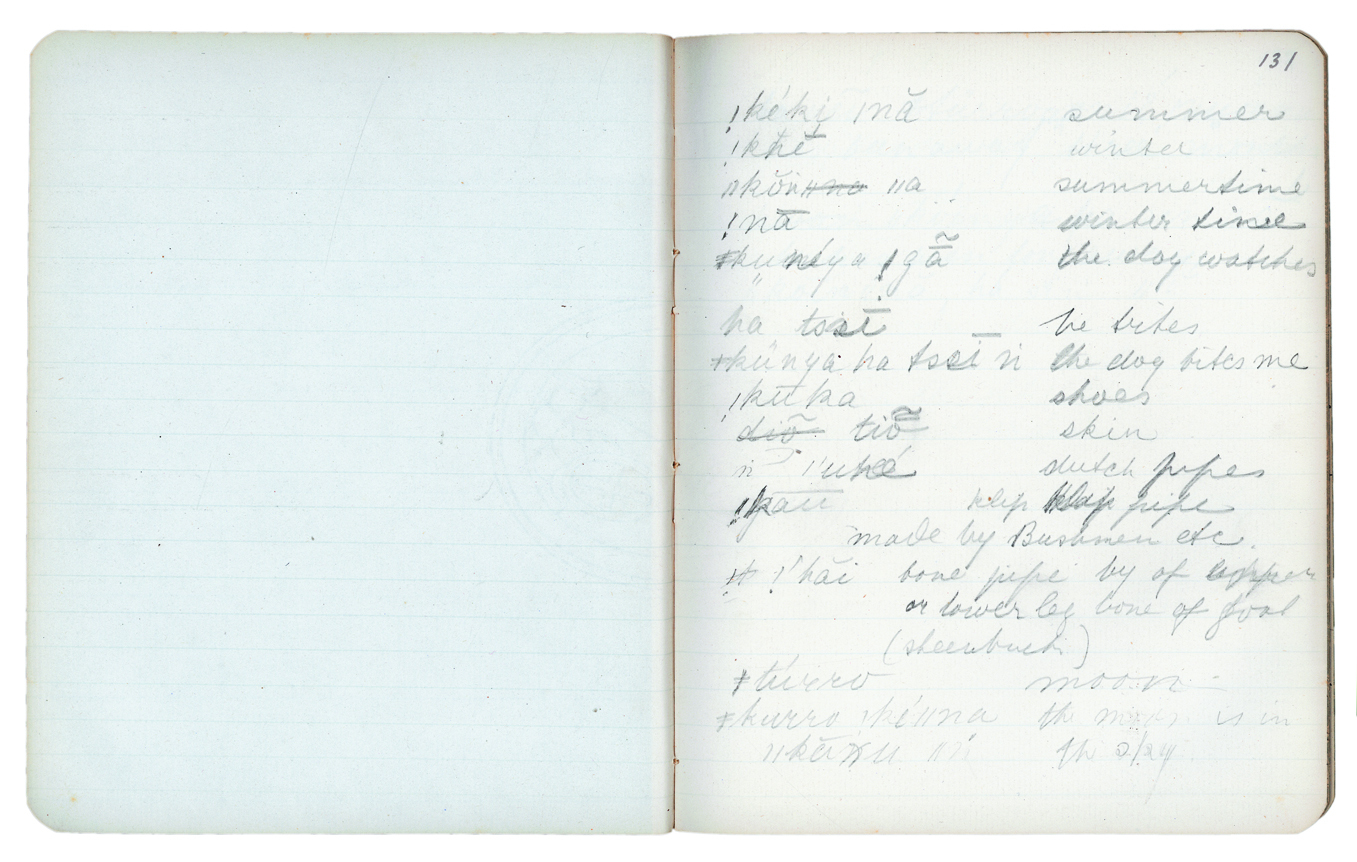 131
ǃkéki̯ ǀnă summer
ǃkhē̆ winter
ǁkŏn ǁa summertime
ǃnā winter time
ǂkṳníya ǃgā̃ the dog watches
ha tsēi he bites
ǂkünya ha tsēi ṅ the dog bites me
ǃkūka shoes
diõ tiõ skin
dutch pipes
ǃkau klip klip pipe
made by Bushmen etc.
ǃ'hāi bone pipe by of upper
or lower leg bone of goat
(steenbuck)
ǂtúrro moon
ǂkurro the moon is in
the sky